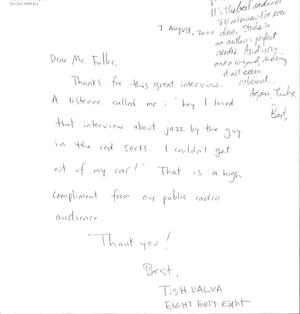 It's the best radio or
TV interview I've ever
done. Studs is
an author's perfect
reader. And very
Again, thanks,
Best,
7 August, 2000
Dear Mr. Fuller,
Thanks for this great interview.
A listener called me: "hey I loved
that interview about jazz by the guy
in the red socks. I couldn't get
out of my car!" That is a high
compliment from our public radio
audience.
Thank you!
Best,
TISH VALVA
EIGHT FORTY-EIGHT